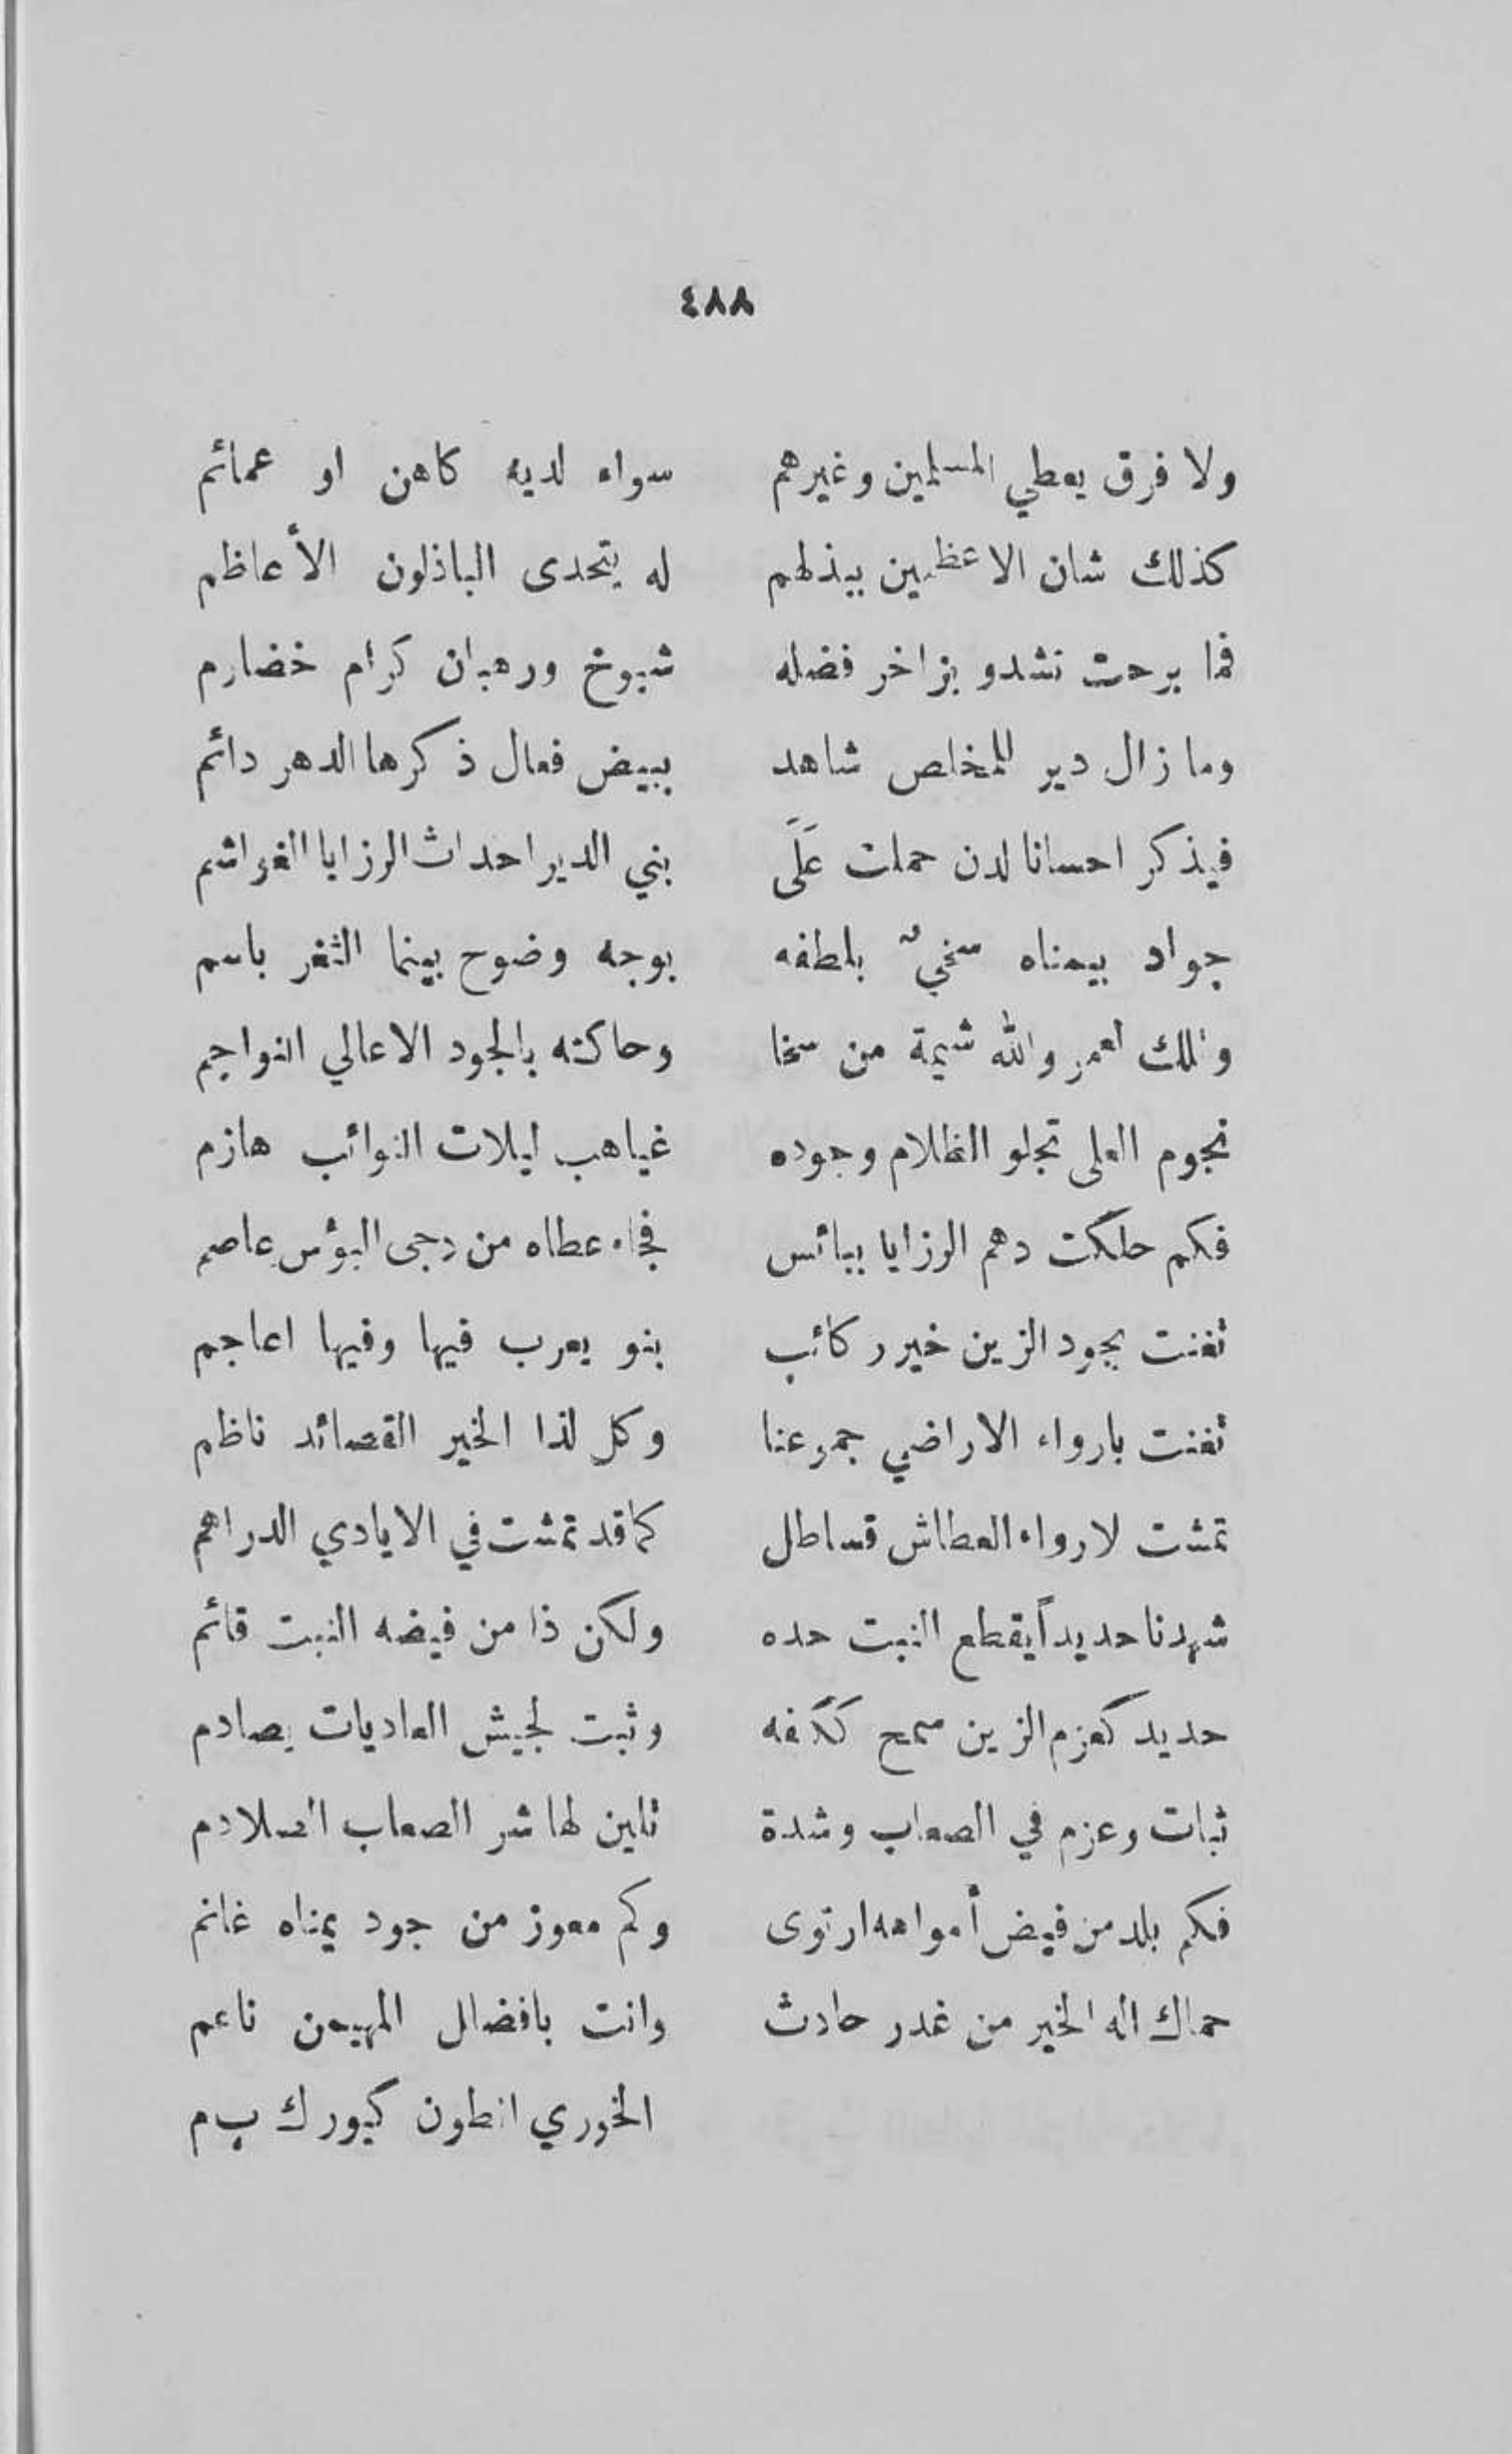 ٤٨٨
ولا فرق يعطي المسلمين وغيرهم سواء لديه كاهن او عمائم
كذلك شان الاعظمين ببذلهم له يتحدى الباذلون الأعاظم
فما برحت تشدو بزاخر فضله شيوخ ورهبان كرام خضارم
وما زال دير للمخلص شاهد ببيض فعال ذكرها الدهر دائم
فيذكر احسانا لدن حملت عَلَى بني الدير احداث الرزايا الغواشم
جواد بيمناه سخيٌ بلطفه بوجه وضوح بينما الثغر باسم
وتلك لعمر والله شيمة من سخا وحاكته بالجود الاعالي النواجم
نجوم العلى تجلو الظلام وجوده غياهب ليلات النوائب هازم
فكم حلكت دهم الرزايا ببائس فجاء عطاه من دجى البؤس عاصم
تغنت بجود الزين خير ركائب بنو يعرب فيها وفيها اعاجم
تغنت بارواء الاراضي جموعنا وكل لذا الخير القصائد ناظم
تمشت لارواء العطاش قساطل كما قد تمشت في الايادي الدراهم
شهدنا حديداً يقطع النبت حده ولكن ذا من فيضه النبت قائم
حديد كعزم الزين سمح ككفه وثبت لجيش العاديات يصادم
ثبات وعزم في الصعاب وشدة تلين لها شر الصعاب الصلادم
فكم بلد من فيض أمواهه ارتوى وكم معوز من جود يمناه غانم
حماك اله الخير من غدر حادث وانت بافضال المهيمن ناعم
الخوري انطون كيورك ب م